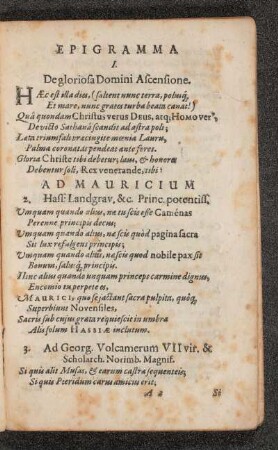 EPIGRAMMA
I.
De gloriosa Domini Ascensione.
HÆc est illa dies, (saltent nunc terra, polusq́,
Et mare, nunc grates turba beata canat!)
Quâ quondam Christus verus Deus, atq; HOMO verꝰ,
Devicto Sathanâ scandit ad astra poli;
Læta triumfali præcingite mœnia Lauru,
Palma coronatis pendeat ante fores.
Gloria Christe tibi debetur, laus, & honores
Debentur soli, Rex venerande, tibi!
AD MAURICIUM
2. Hass. Landgrav, &c. Princ. potentiss.
Umquam quando alius, na tu scis esse Camœnas
Perenne principis decus;
Umquam quando alius, na scis quòd pagina sacra
Sit lux refulgens principis;
Umquam quando alius, na scis quod nobile pax sit
Bonum, salusq́, principis.
Hinc alius quando unquam princeps carmine dignus,
Encomio tu perpete es,
MAURICI, quo se jactant sacra pulpita, quòq́,
Superbiunt Novensiles,
Sacris sub cujus grata requiescit in umbra
Aliṡ solum HASSIÆ inclutum.
3. Ad Georg. Volcamerum VII vir. &
Scholarch. Norimb. Magnif.
Si quis alit Musas, & earum castra sequenteis,
Si quis Pieridum carus amicus erit,
A 2 Si